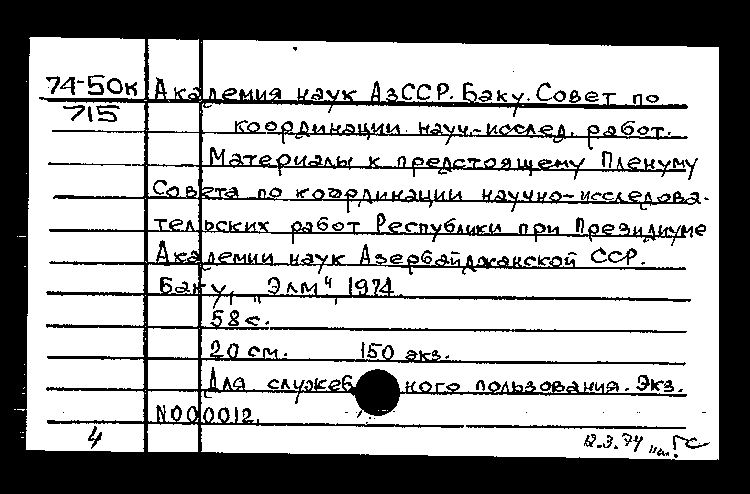 74-50к Академия наук АзССР. Баку. Совет по
715
координации науч-исслед. работ.
Материалы к предстоящему Пленуму
Совета по координации научно-исследова-
тельских работ Республики при Президиуме
Академии наук Азербайджанской ССР.
Баку, „Элм“, 1974.
58с.
20 см. 150 экз.
Для служебного пользования. Экз.
N000012.
4 12.3.74